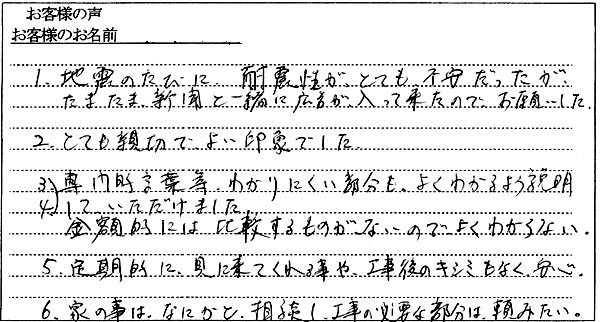 お客様の声
お客様のお名前
1. 地震のたびに、耐震性が、とても、不安だったが、
たまたま、新聞と一緒に広告が、入って来たので、お願いした。
2. とても親切で、よい印象でした。
3.) 専門的言葉等、わかりにくい部分も、よくわかるよう説明
4.) して、いただけました。
金額的には、比較するものがないので、よくわからない。
5. 定期的に、見に来てくれる事や、工事後のキシミもなく、安心。
6. 家の事は、なにかと、相談し、工事の必要な部分は、頼みたい。